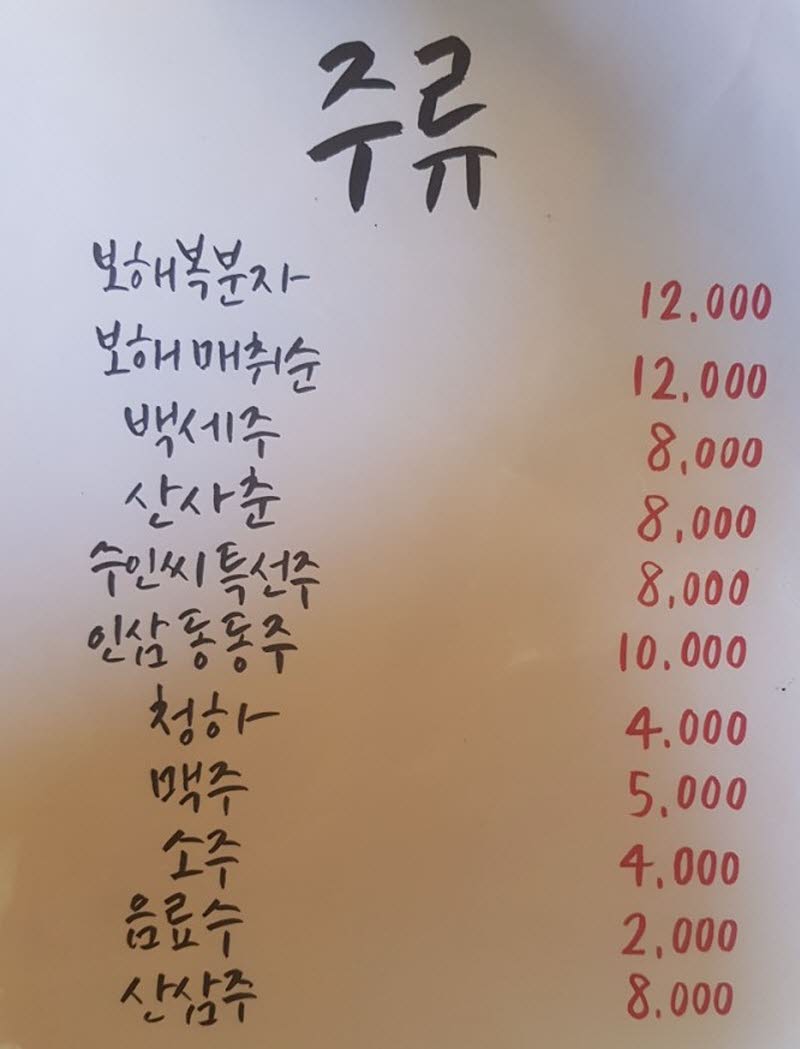 주류
보해복분자 12,000
보해 매취순 12,000
백세주 8,000
산사춘 8,000
수인씨 특선주 8,000
인삼 동동주 10.000
청하 4.000
맥주 5,000
소주 4,000
음료수 2,000
산삼주 8.000